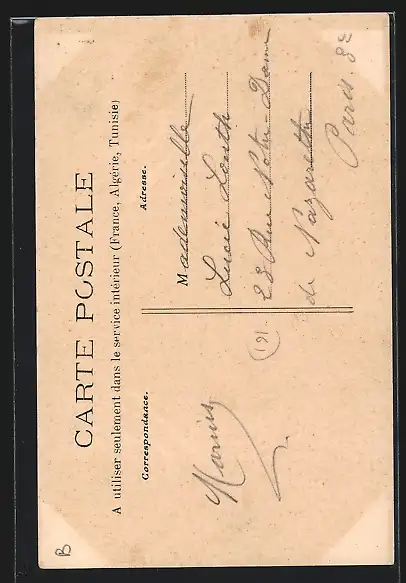 CARTE POSTALE
A utiliser seulement dans le service intérieur (France, Algérie, Tunisie)
Correspondance.
Adresse.
Marius
Mademoiselle
Lucie
23 Rue Notre Dame
de Nazareth
Paris. 3e
(191.
B